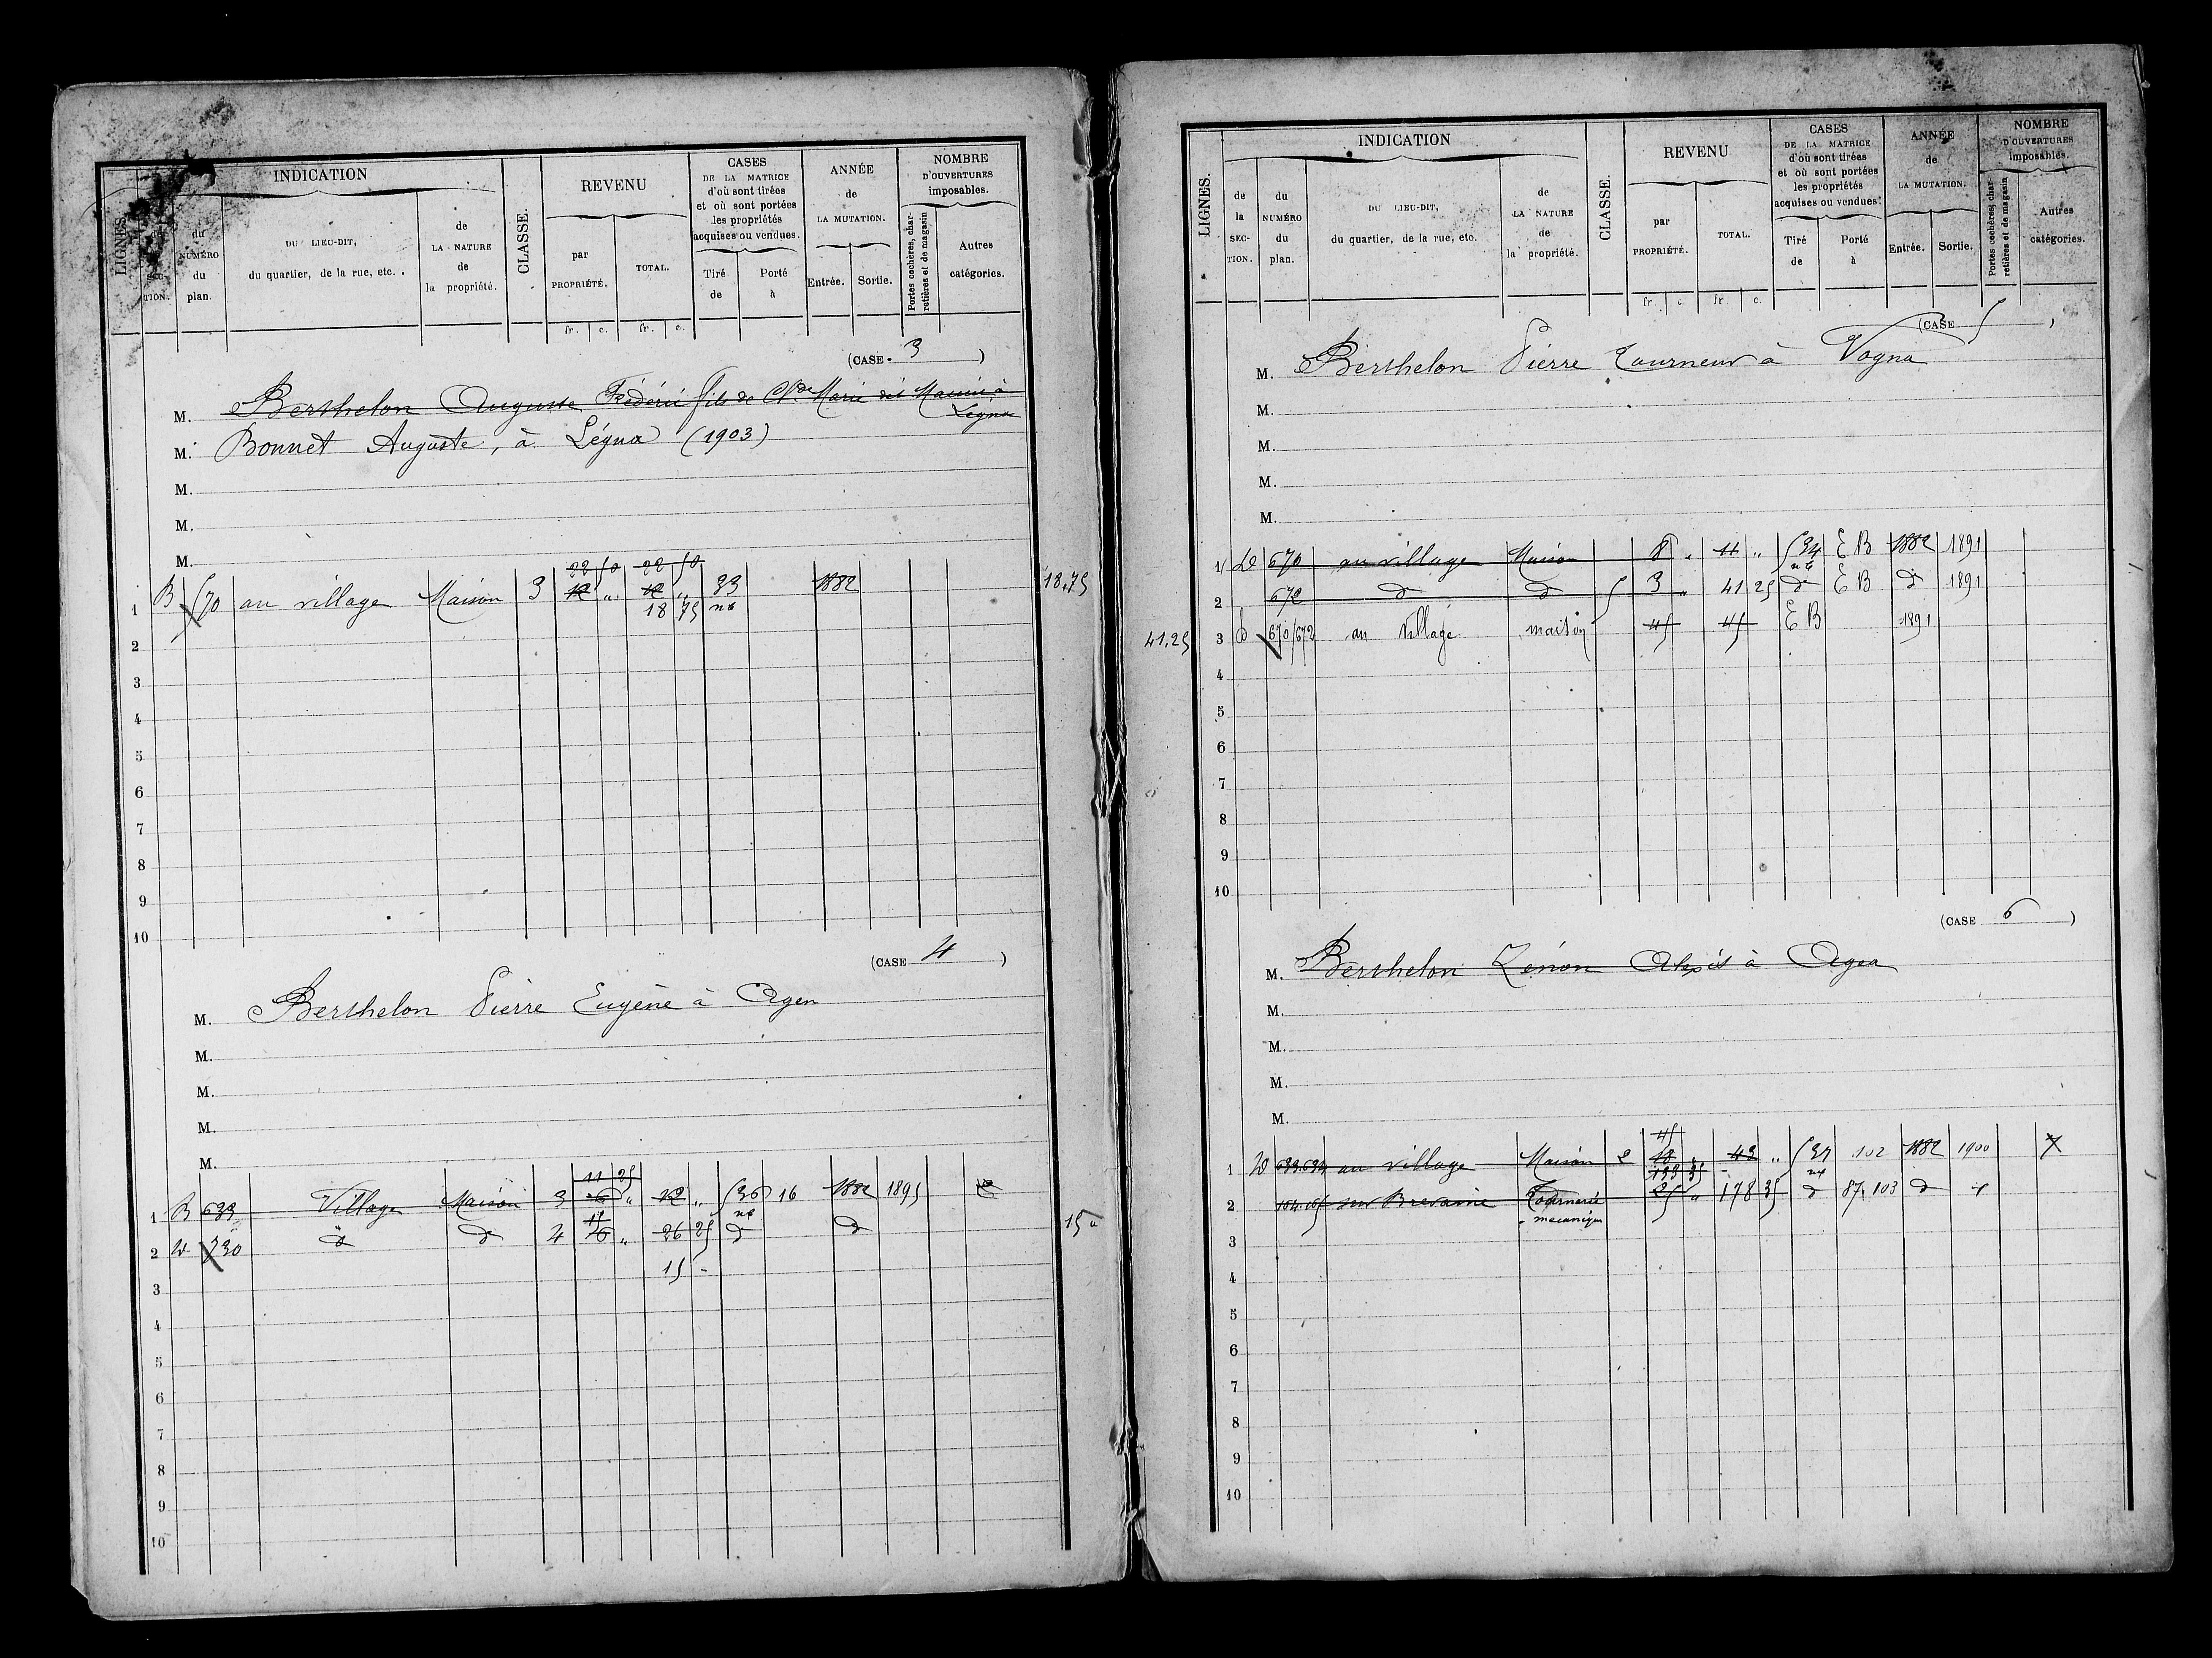 LIGNES.
INDICATION
SEC-
TION.
du
NUMÉRO
du
plan.
DU LIEU-DIT,
du quartier, de la rue, etc.
de
LA NATURE
de
la propriété.
CLASSE.
REVENU
par
PROPRIÉTÉ.
TOTAL.
fr. c. fr. c.
CASES
DE LA MATRICE
d'où sont tirées
et où sont portées
les propriétés
acquises ou vendues.
Tiré
de
Porté
à
ANNÉE
de
LA MUTATION.
Entrée. Sortie.
NOMBRE
D'OUVERTURES
imposables.
Portes cochères, char-
retières et de magasin
Autres
catégories.
(CASE 3 )
M. Berthelon Auguste Fédéric fils de Cl.de Marie dit
Legna
M. Bonnet Auguste, à Légna (1903)
M.
M.
M.
1 B 570 au village Maison 3 22 50 22 50 33 1882 18,75
12 " 12 "
18 75 n b
2
3
4
5
6
7
8
9
10
(CASE 4 )
M. Berthelon Pierre Eugène à Agea
M.
M.
M.
M.
11 25
1 B 633 Village Maison 3 6 " 12 " 536 16 1882 1895
n b
15
2 D 730 d d 4 6 " 26 25 d d 15 "
3 15 -
4
5
6
7
8
9
10
LIGNES.
INDICATION
de
la
SEC-
TION.
du
NUMÉRO
du
plan.
DU LIEU-DIT,
du quartier, de la rue, etc.
de
LA NATURE
de
la propriété.
CLASSE.
REVENU
par
PROPRIÉTÉ.
TOTAL.
fr. c. fr. c.
CASES
DE LA MATRICE
d'où sont tirées
et où sont portées
les propriétés
acquises ou vendues.
Tiré
de
Porté
à
ANNÉE
de
LA MUTATION.
Entrée. Sortie.
NOMBRE
D'OUVERTURES
imposables.
Portes cochères, char-
retières et de magasin
Autres
catégories.
(CASE 5 )
M. Berthelon Pierre Tourneur à Vogna
M.
M.
M.
M.
1 D 670 au village Maison 8 " 11 " 534 E B 1882 1891
n b
2 672 d d 5 3 " 41 25 d E B d 1891
41,25 3 D 670/672 au Village maison 45 45 E B 1891
4
5
6
7
8
9
10
(CASE 6 )
M. Berthelon Zénon Alexis à Agea
M.
M.
M.
M.
45
1 D 633.634 au village Maison 2 18 " 43 " 537 102 1882 1900 7
n b
133 35
2 164.165 sur Bresanne Tournerie 25 " 178 35 d 87, 103 d d
mécanique
3
4
5
6
7
8
9
10